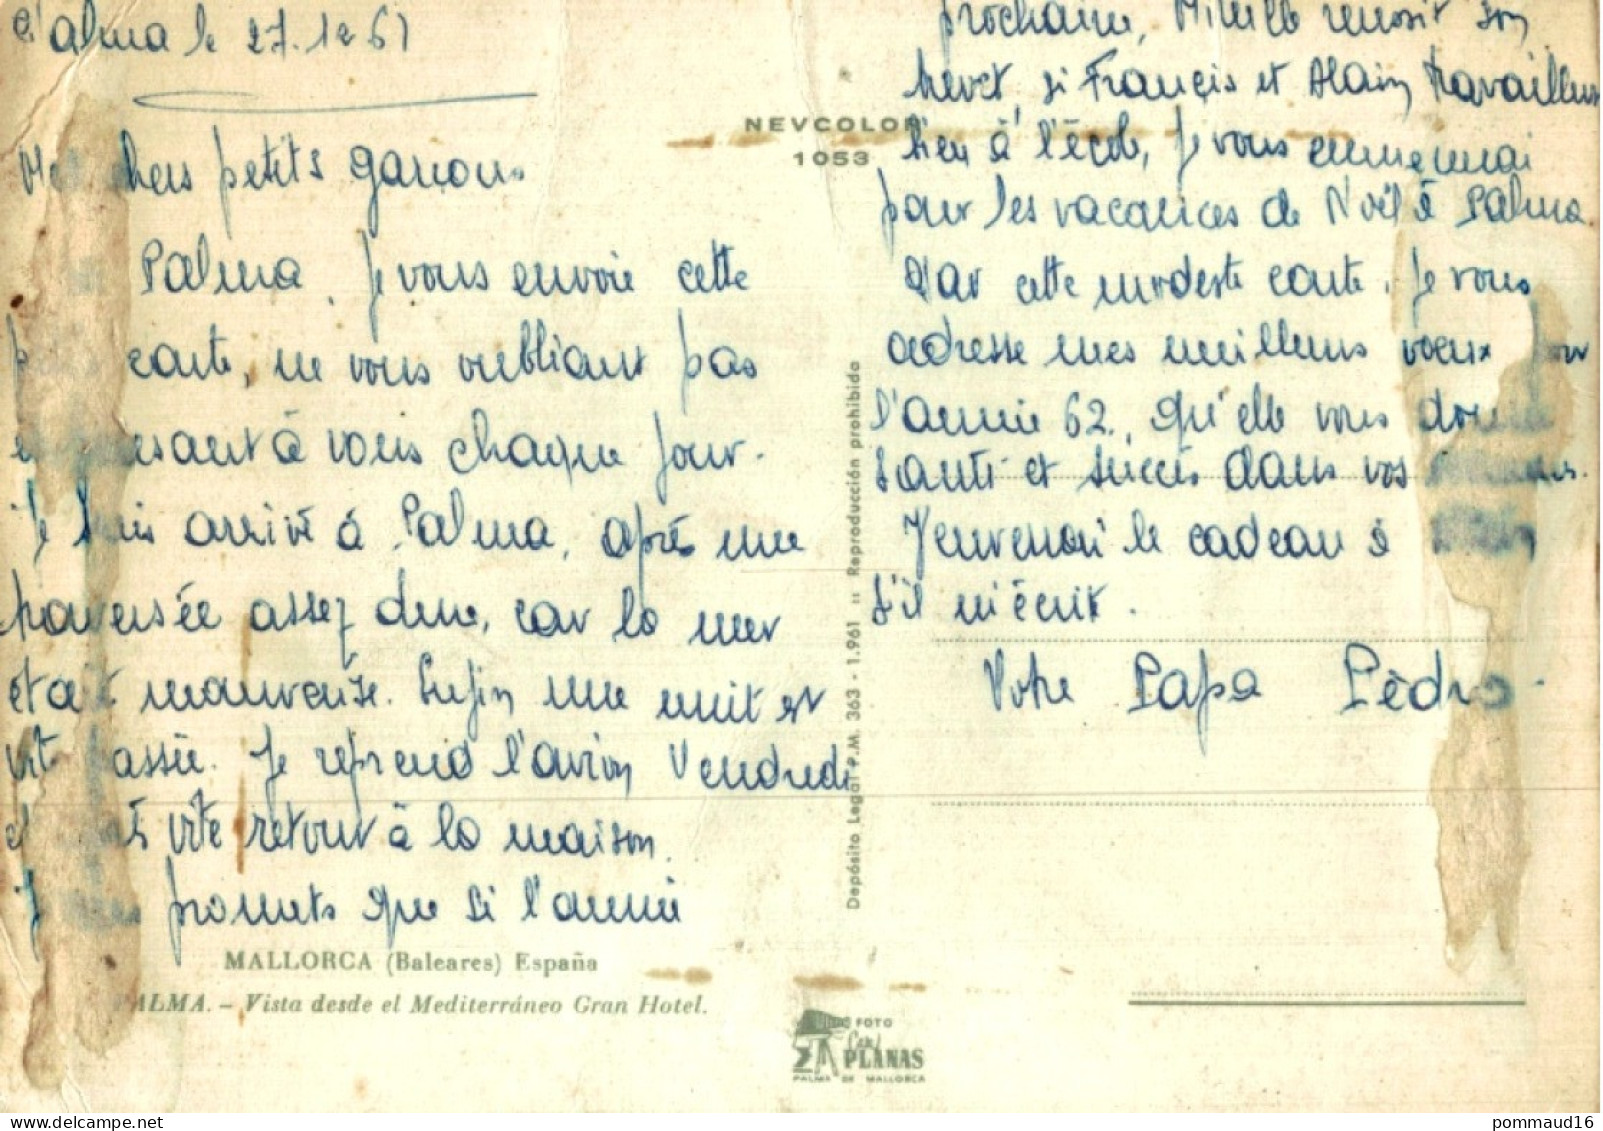 Palma le 27.12 61
chers petits garçons
Palma, je vous envoie cette
carte, ne vous oubliant pas
pensant à vous chaque jour.
Je suis arrivé à Palma, après une
traversée assez dure, car la mer
était mauvaise. Enfin une nuit est
vite passée. Je reprend l'avion Vendredi
et vite retour à la maison.
promets que si l'année
MALLORCA (Baleares) España
PALMA. – Vista desde el Mediterráneo Gran Hotel.
NEVCOLOR
1053
Depósito Legal P.M. 363 - 1.961 :: Reproducción prohibido
FOTO
PLANAS
PALMA DE MALLORCA
prochaine, Mireille réussit son
brevet, si François et Alain travaillent
bien à l'école, je vous emmenerai
pour les vacances de Noël à Palma.
Par cette modeste carte, je vous
adresse mes meilleurs voeux pour
l'année 62, qu'elle vous donne
santé et succès dans vos
J'enverrai le cadeau à
s'il m'écrit.
Votre Papa Pèdro.
pommaud16